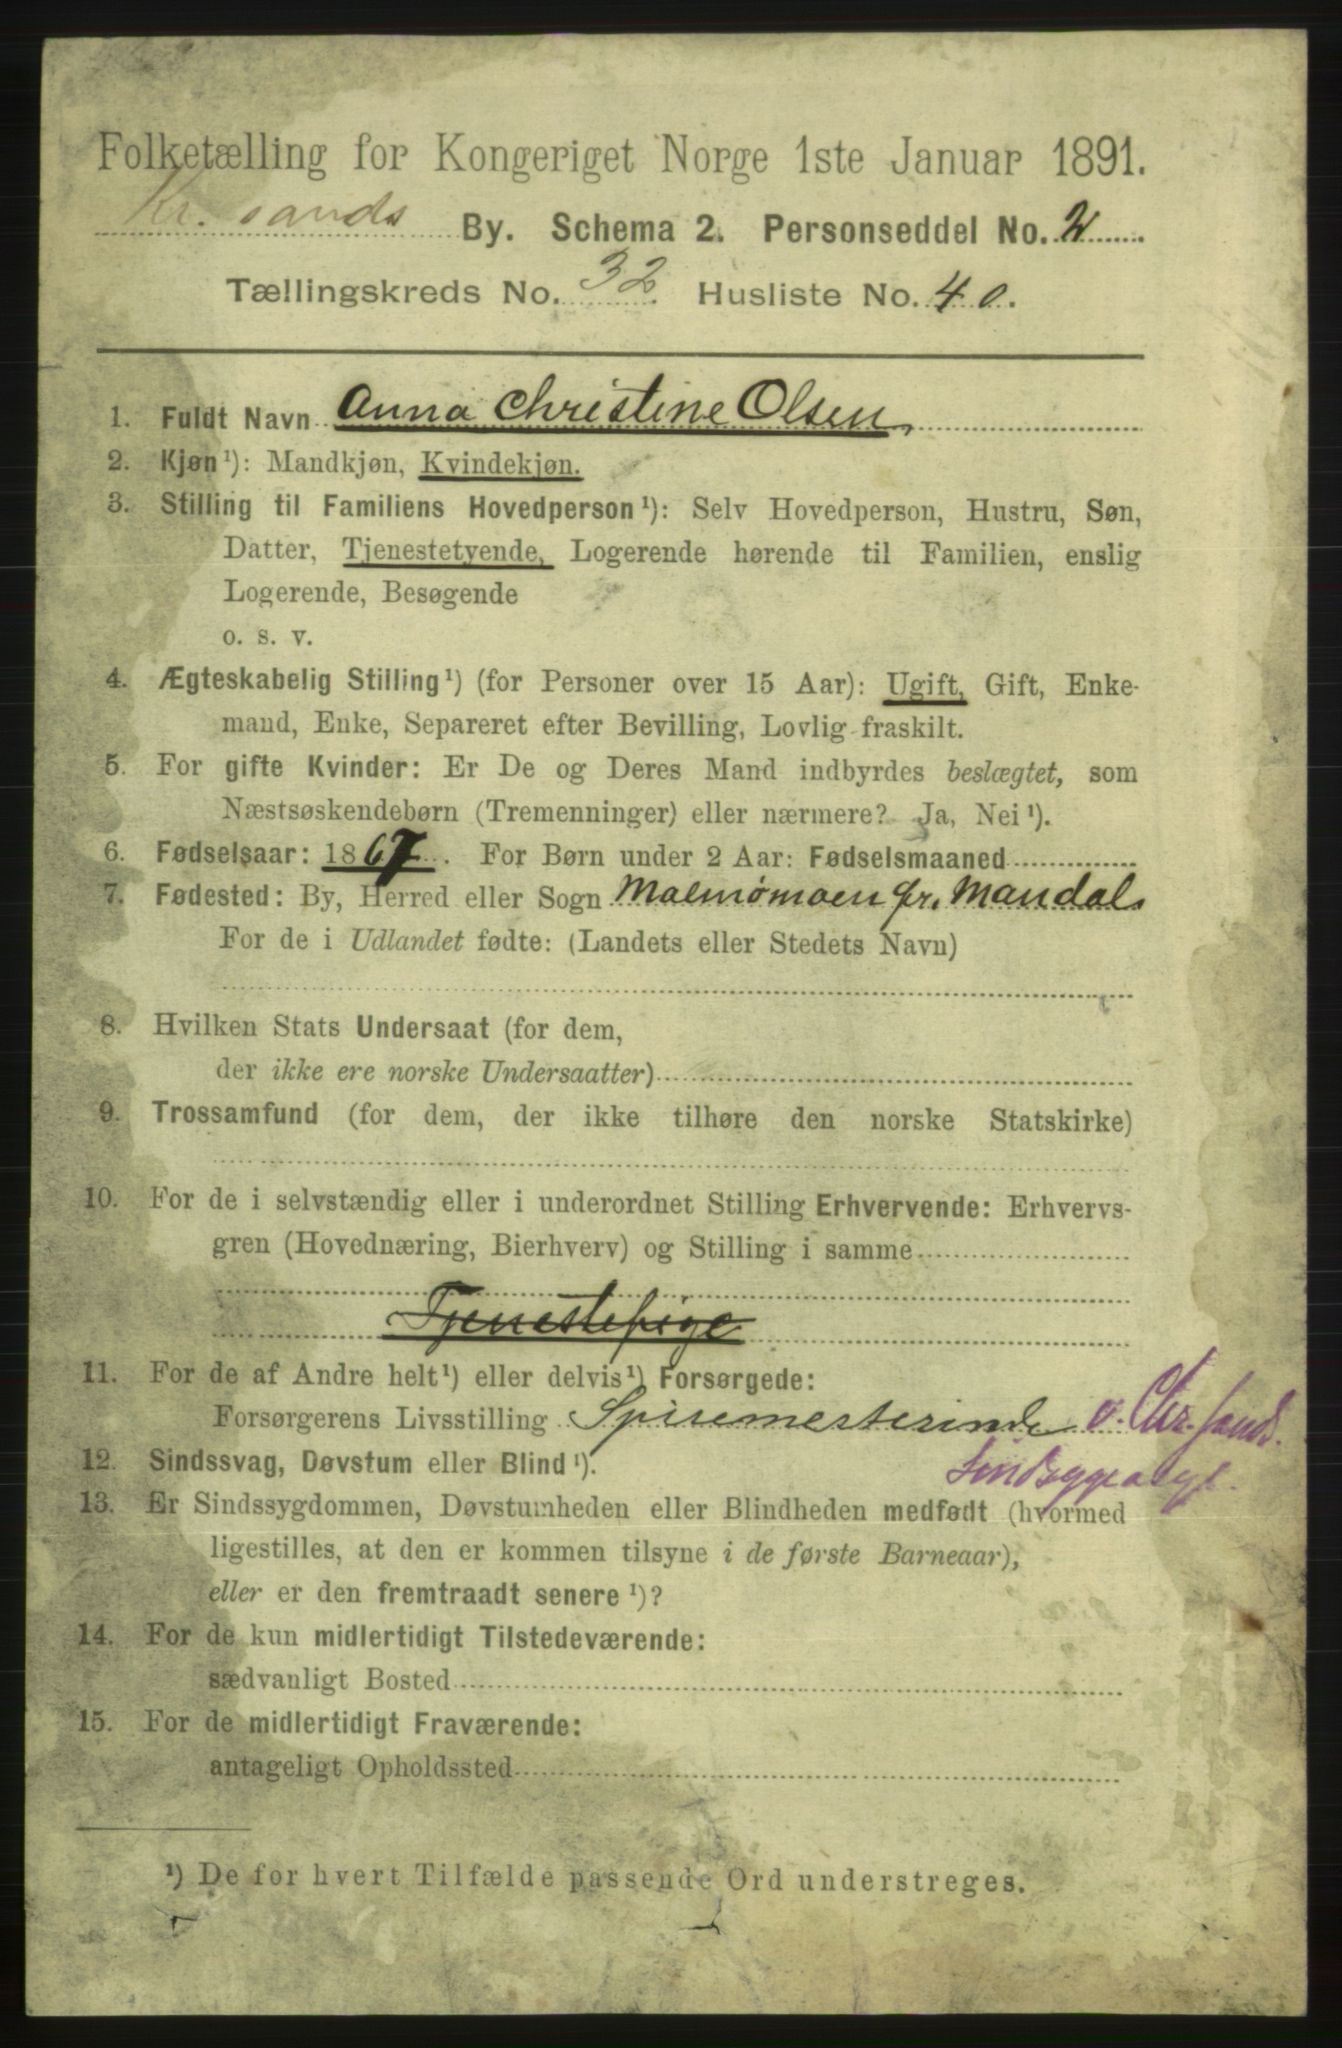 Folketælling for Kongeriget Norge 1ste Januar 1891.
Kr. sands By. Schema 2. Personseddel No. 2
Tællingskreds No. 32. Husliste No. 40.
1. Fuldt Navn Anna Christine Olsen,
2. Kjøn ¹): Mandkjøn, Kvindekjøn.
3. Stilling til Familiens Hovedperson ¹): Selv Hovedperson, Hustru, Søn,
Datter, Tjenestetyende, Logerende hørende til Familien, enslig
Logerende, Besøgende
o. s. v.
4. Ægteskabelig Stilling ¹) (for Personer over 15 Aar): Ugift, Gift, Enke-
mand, Enke, Separeret efter Bevilling, Lovlig fraskilt.
5. For gifte Kvinder: Er De og Deres Mand indbyrdes beslægtet, som
Næstsøskendebørn (Tremenninger) eller nærmere? Ja, Nei ¹).
6. Fødselsaar: 1867. For Børn under 2 Aar: Fødselsmaaned
7. Fødested: By, Herred eller Sogn Malmømoen pr. Mandal.
For de i Udlandet fødte: (Landets eller Stedets Navn)
8. Hvilken Stats Undersaat (for dem,
der ikke ere norske Undersaatter)
9. Trossamfund (for dem, der ikke tilhøre den norske Statskirke)
10. For de i selvstændig eller i underordnet Stilling Erhvervende: Erhvervs-
gren (Hovednæring, Bierhverv) og Stilling i samme
Tjenestepige
11. For de af Andre helt ¹) eller delvis ¹) Forsørgede:
Forsørgerens Livsstilling Spisemesterinde v. Chr.sands
12. Sindssvag, Døvstum eller Blind ¹). Sindsygeasyl.
13. Er Sindssygdommen, Døvstumheden eller Blindheden medfødt (hvormed
ligestilles, at den er kommen tilsyne i de første Barneaar),
eller er den fremtraadt senere ¹)?
14. For de kun midlertidigt Tilstedeværende:
sædvanligt Bosted
15. For de midlertidigt Fraværende:
antageligt Opholdssted
¹) De for hvert Tilfælde passende Ord understreges.